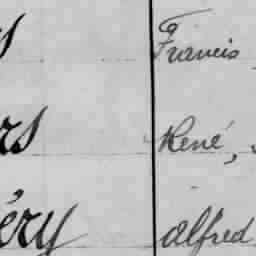 s Francis
rs René,
éry Alfred